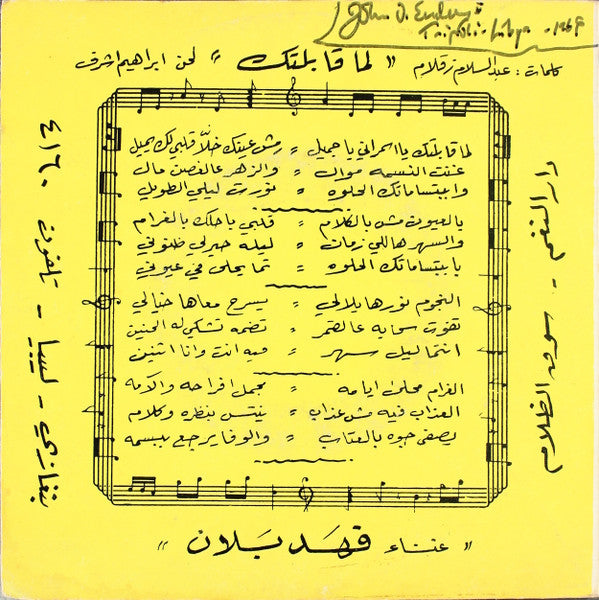 John D.
Tripoli - Libya - 1969
كلمات : عبدالسلام زقلام « لما قابلتك » لحن ابراهيم اشرف
لما قابلتك يا اسمراني يا جميل = رمش عينك خلّا قلبي لك يميل
غنت النسمه موال = والزهر عالغصن مال
وابتساماتك الحلوه = نورت ليلي الطويل
بالعيون مش بالكلام = قلبي باحلك بالغرام
والسهر هاللي زمان = ليله حيرلي ظنوني
يا ابتساماتك الحلوه = تما يحلى في عيوني
النجوم نورها يلالي = يسرح معاها خيالي
تفوت سحابه عالقمر = تضمه تشكي له الحنين
انتما ليل سهر = فيه انت وانا اثنين
الغرام محلى ايامه = بجمل افراحه والآمه
العذاب فيه مش عذاب = ينتسى بنظره وكلام
يصفى جوه بالعتاب = والوفا يرجع ببسمه
« غناء فهد بلان »
دار النغم - سوق الظلام
بنغازي - ليبيا - تلفون ٤١٦٠